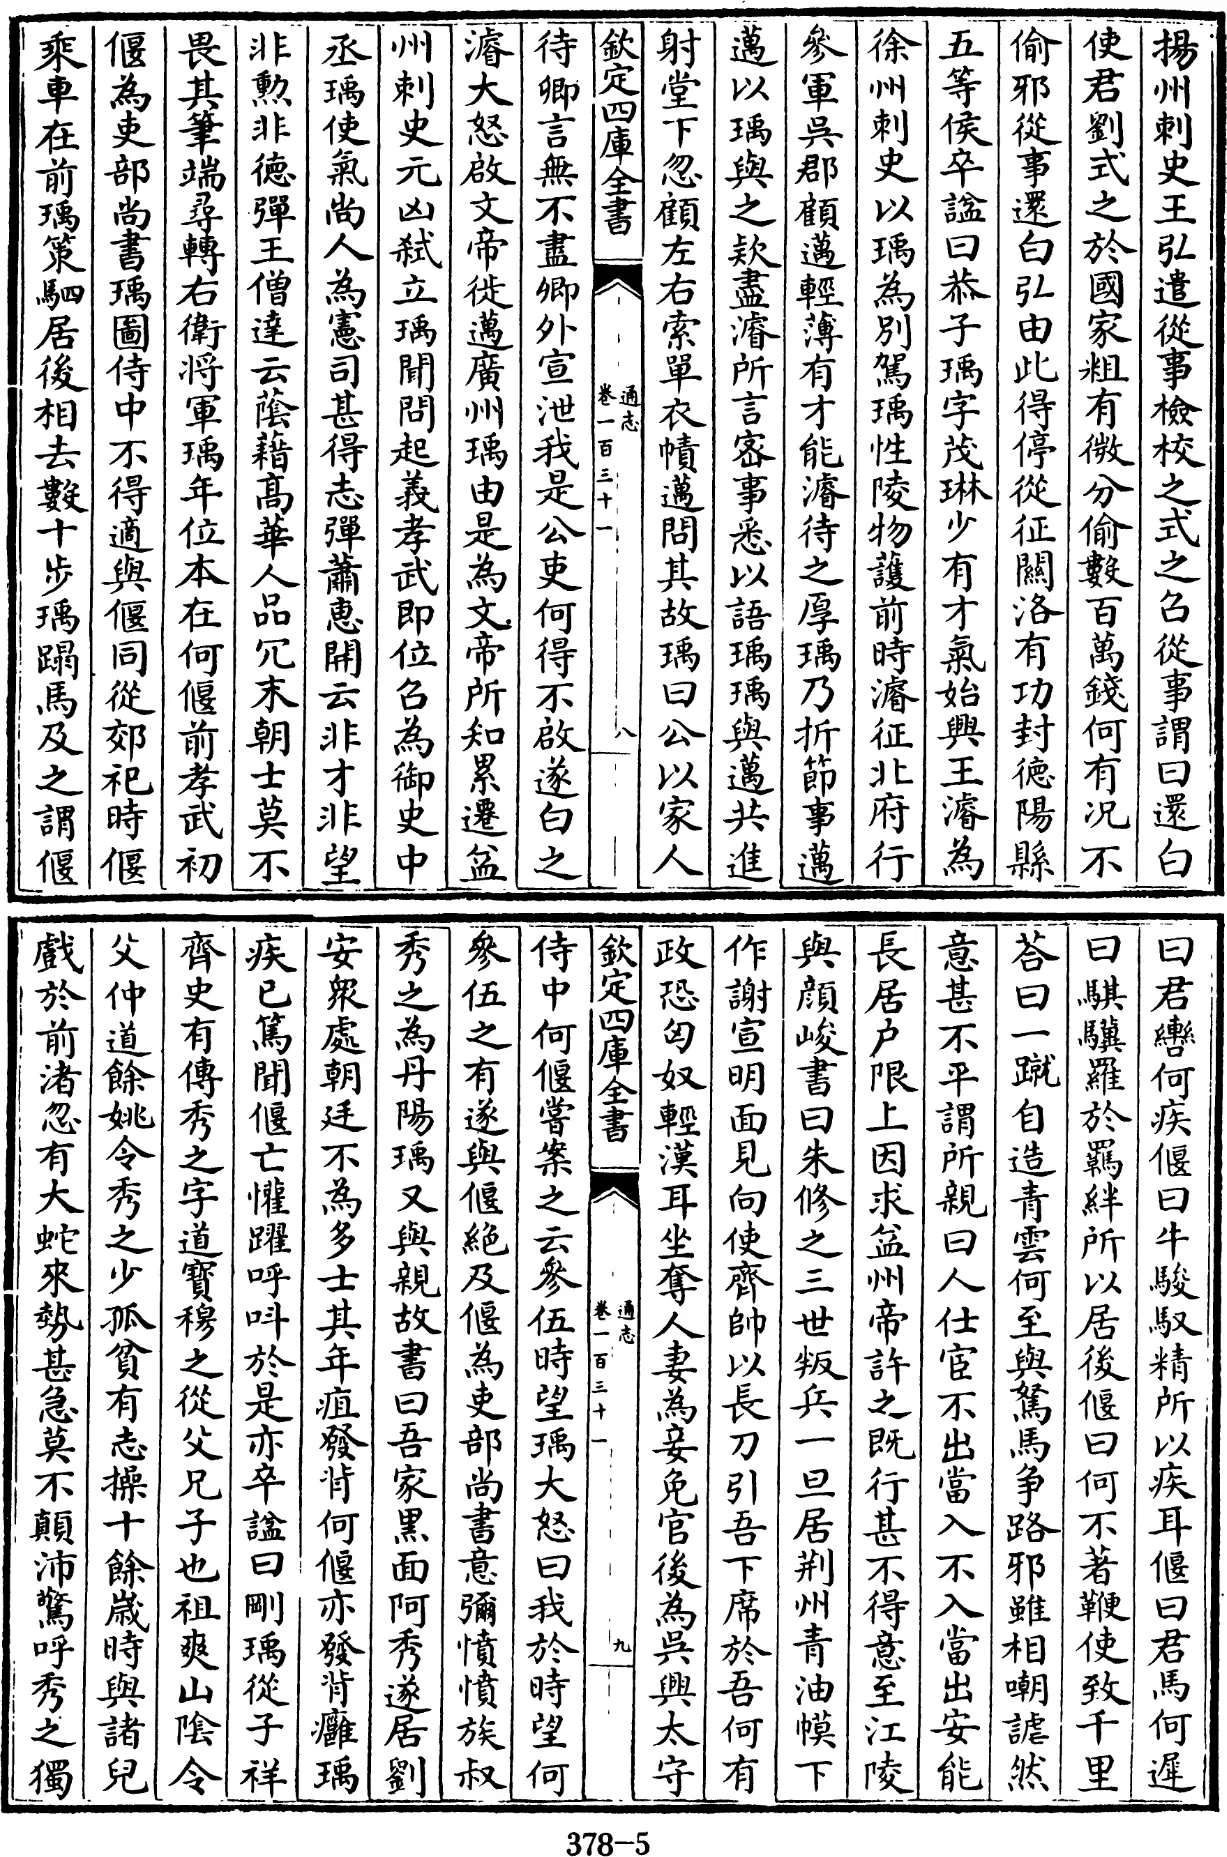 揚州刺史王弘遣從事檢校之式之召從事謂曰還白
使君劉式之於國家粗有微分偷數百萬錢何有況不
偷邪從事還白弘由此得停從征關洛有功封德陽縣
五等侯卒諡曰恭子瑀字茂琳少有才氣始興王濬為
徐州刺史以瑀為別駕瑀性陵物護前時濬征北府行
參軍吳郡顧邁輕薄有才能濬待之厚瑀乃折節事邁
邁以瑀與之欵盡濬所言密事悉以語瑀瑀與邁共進
射堂下忽顧左右索單衣幘邁問其故瑀曰公以家人
欽定四庫全書
通志
卷一百三十一
八
待卿言無不盡卿外宣泄我是公吏何得不啟遂白之
濬大怒啟文帝徙邁廣州瑀由是為文帝所知累遷益
州刺史元凶弒立瑀聞問起義孝武即位召為御史中
丞瑀使氣尚人為憲司甚得志彈蕭惠開云非才非望
非勲非德彈王僧達云蔭藉高華人品冗末朝士莫不
畏其筆端尋轉右衛將軍瑀年位本在何偃前孝武初
偃為吏部尚書瑀圖侍中不得適與偃同從郊祀時偃
乘車在前瑀策駟居後相去數十步瑀蹋馬及之謂偃
曰君轡何疾偃曰牛駿馭精所以疾耳偃曰君馬何遲
曰騏驥羅於羈絆所以居後偃曰何不著鞭使致千里
荅曰一蹴自造青雲何至與駑馬争路邪雖相嘲謔然
意甚不平謂所親曰人仕宦不出當入不入當出安能
長居户限上因求益州帝許之既行甚不得意至江陵
與顏峻書曰朱修之三世叛兵一旦居荆州青油幙下
作謝宣明面見向使齊帥以長刀引吾下席於吾何有
政恐匈奴輕漢耳坐奪人妻為妾免官後為吳興太守
欽定四庫全書
通志
卷一百三十一
九
侍中何偃嘗案之云參伍時望瑀大怒曰我於時望何
參伍之有遂與偃絶及偃為吏部尚書意彌憤憤族叔
秀之為丹陽瑀又與親故書曰吾家黒面阿秀遂居劉
安衆處朝廷不為多士其年疽發背何偃亦發背癰瑀
疾已篤聞偃亡懽躍呼呌於是亦卒諡曰剛瑀從子祥
齊史有傳秀之字道寶穆之從父兄子也祖爽山陰令
父仲道餘姚令秀之少孤貧有志操十餘歲時與諸兒
戲於前渚忽有大蛇來勢甚急莫不顛沛驚呼秀之獨
378-5